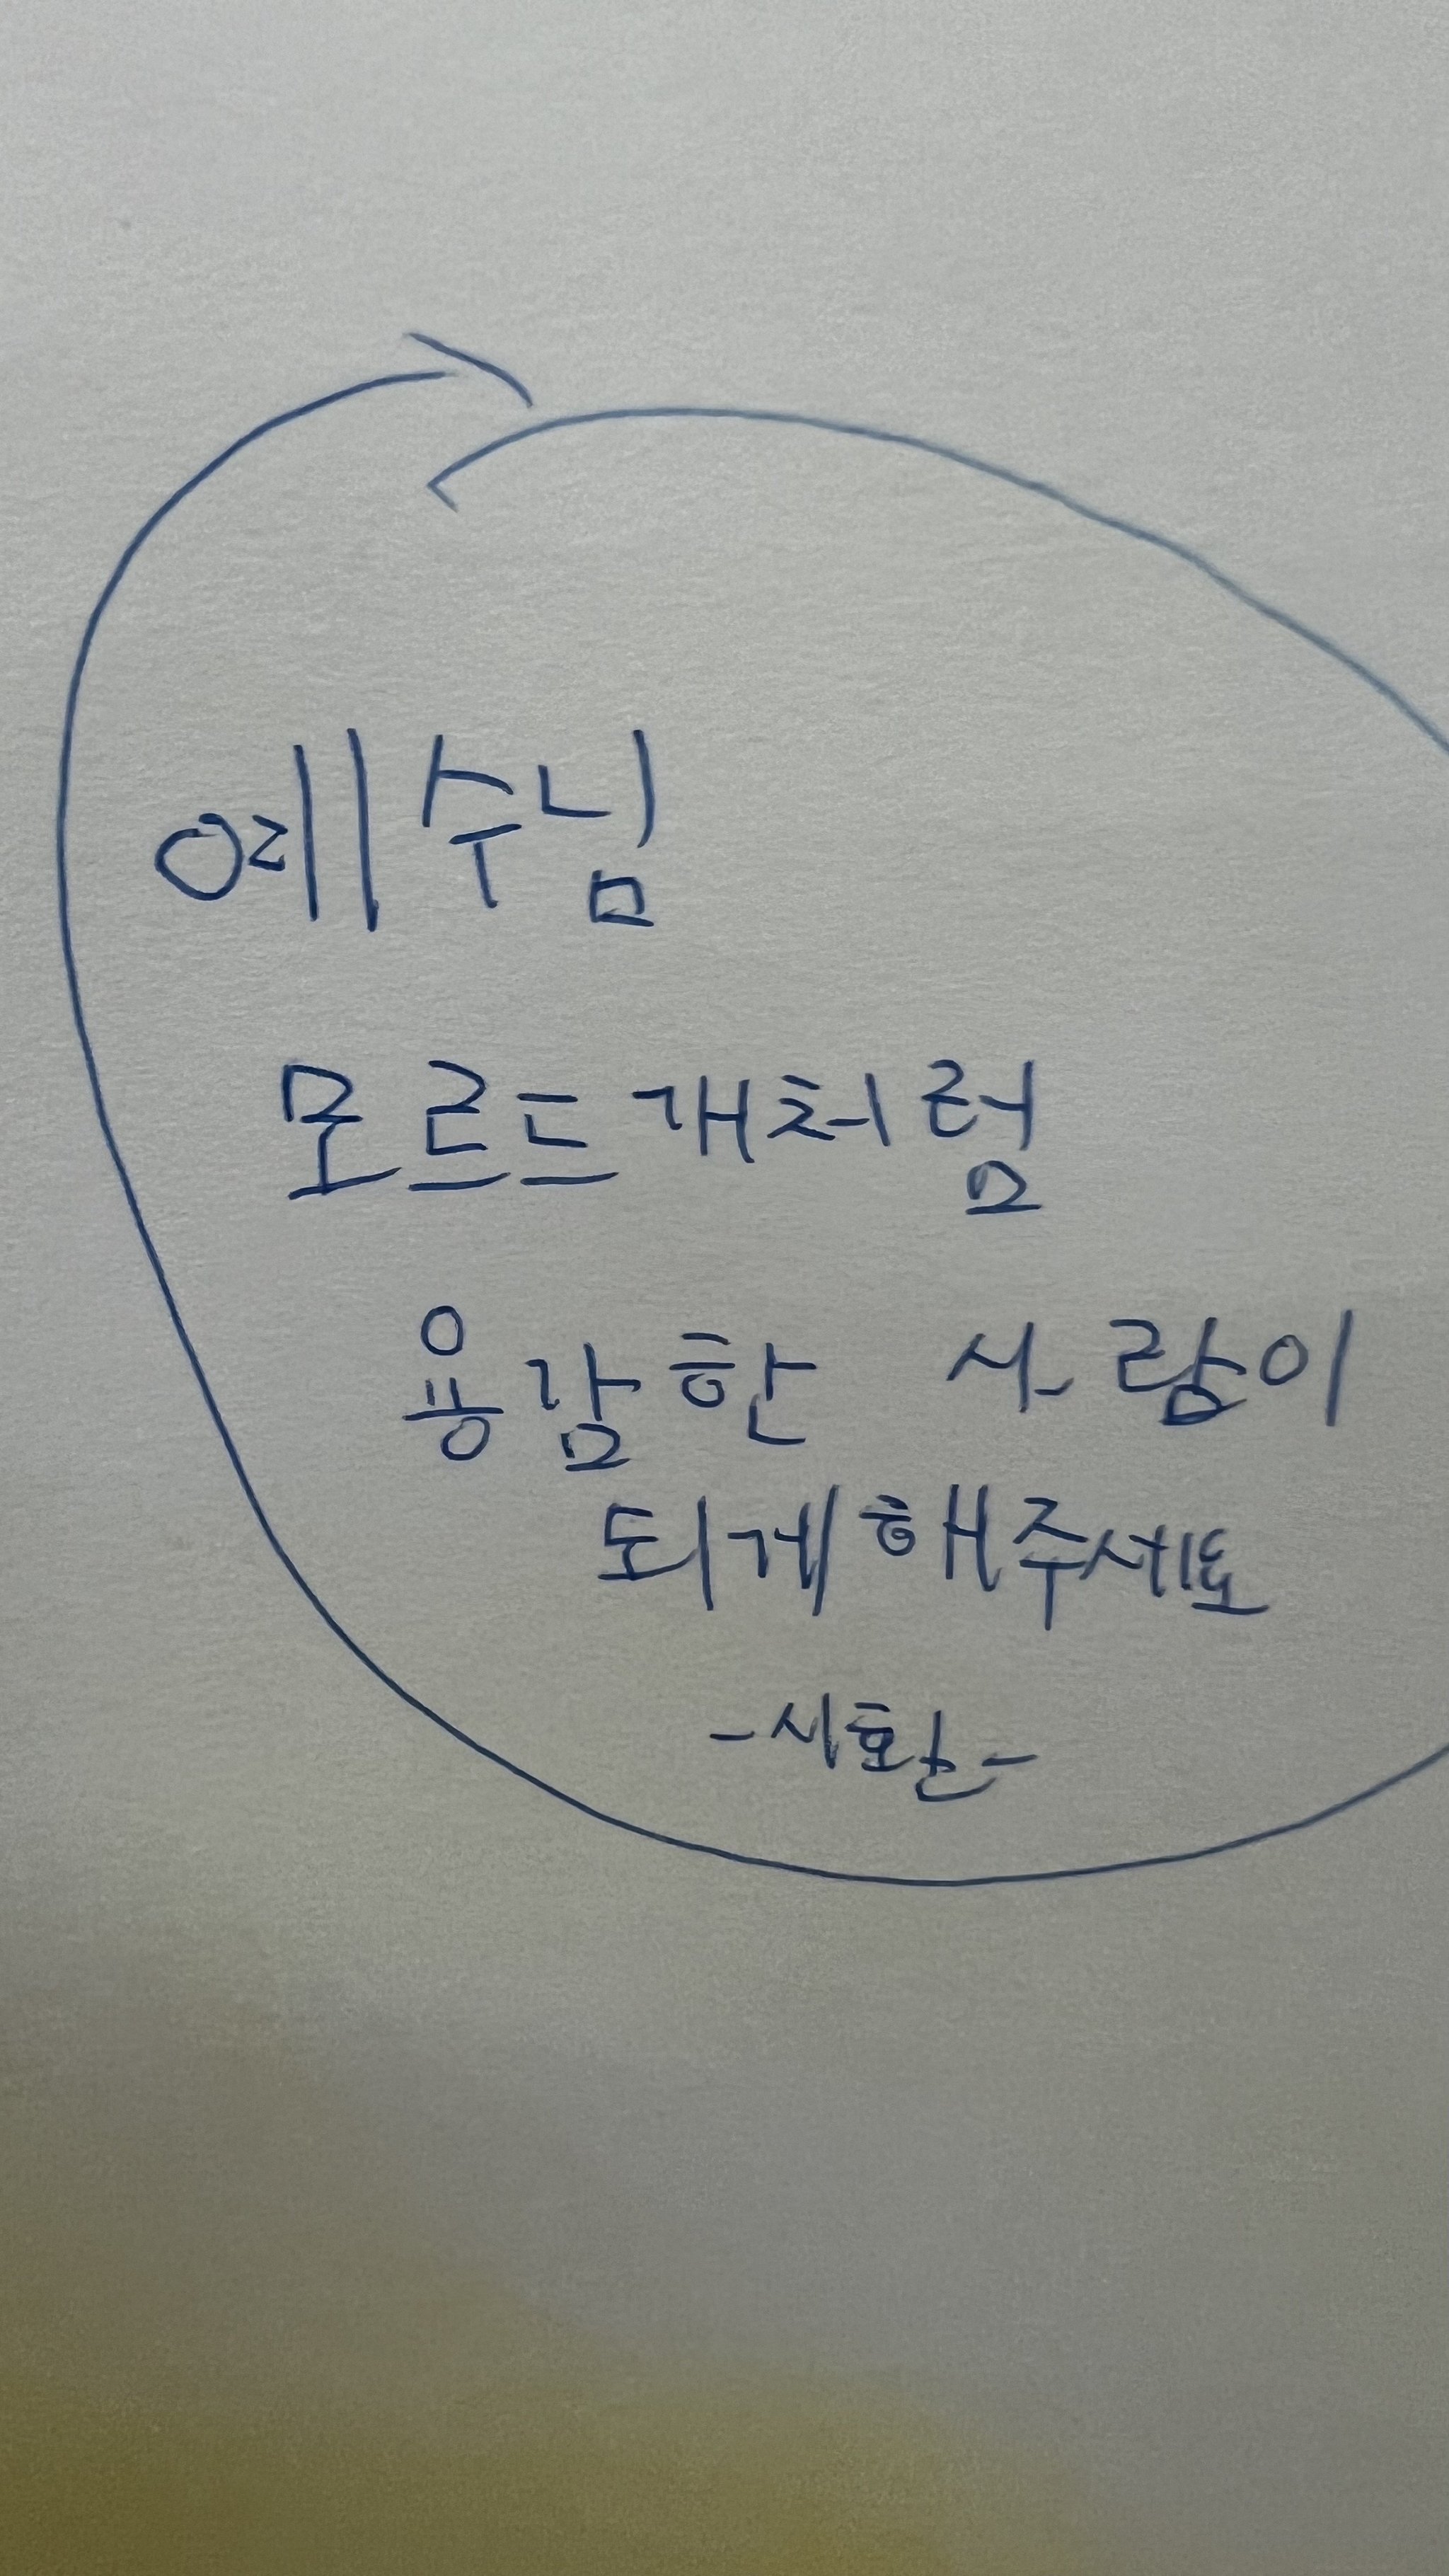 예수님
모르드개처럼
용감한 사람이
되게 해주세요
-시환-